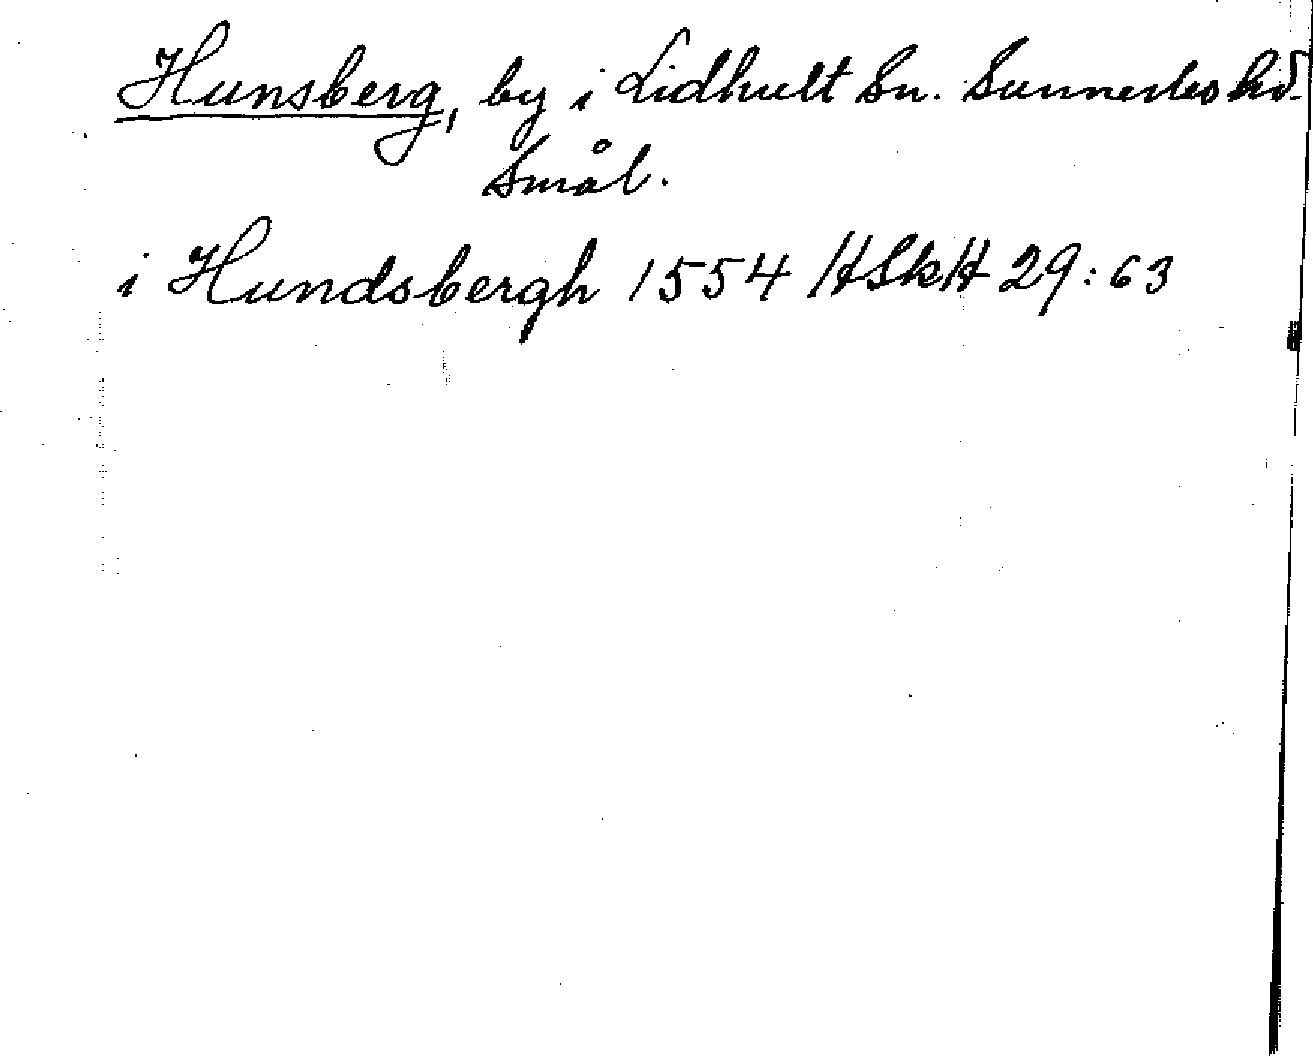 Hunsberg, by i Lidhult sn. Sunnerbo hd.
Smål.
i Hundsbergh 1554 HSkH 29:63